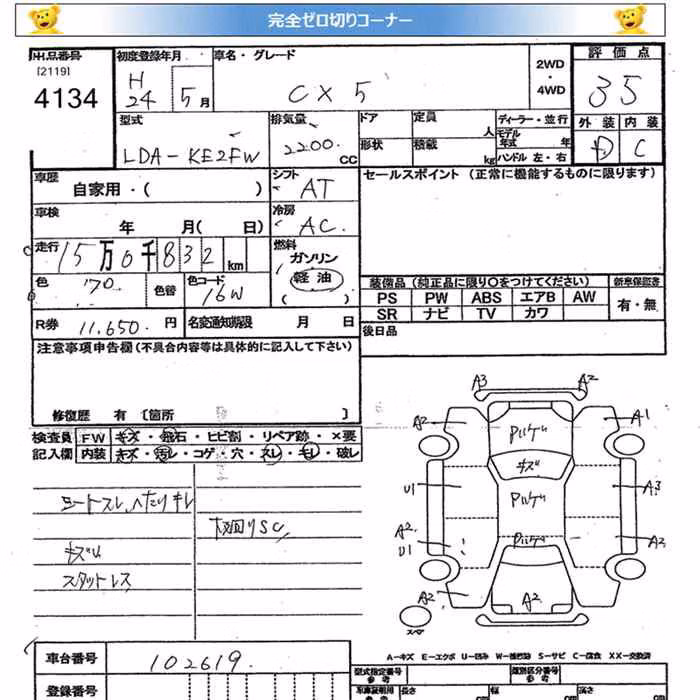 完全ゼロ切りコーナー
出品番号
[2119]
4134
初度登録年月
H
24 5月
車名・グレード
CX 5
2WD
・
4WD
評価点
35
外装 内装
D C
型式
LDA-KE2FW
排気量
2200
CC
ドア
形状
定員
人
積載
kg
ディーラー・並行
モデル
年式 年
ハンドル 左・右
車歴
自家用・( )
シフト
AT
セールスポイント(正常に機能するものに限ります)
車検
年 月( 日)
冷房
AC
走行
15万0千832
km
燃料
ガソリン
軽油
( )
色
色替
色コード
16W
装備品(純正品に限り○をつけてください)
新車保証書
PS PW ABS エアB AW
有・無
SR ナビ TV カワ
R券 11,650. 円
名変通知期限 月 日
後日品
注意事項申告欄(不具合内容等は具体的に記入して下さい)
修復歴 有 [箇所 ]
検査員
記入欄
FW キズ・飛石・ヒビ割・リペア跡・×要
内装 キズ・汚レ・コゲ・穴・スレ・キレ・破レ
シートスレ、ヘたりキレ
下回りSC
キズU
スタットレス
A3 A2
A2 A1
ハゲ
キズ
U1 A3
ハゲ
A2
U1
ハゲ
A3
A2 A2
スペア
A-キズ E-エクボ U-凹み W-補修跡 S-サビ C-腐食 XX-交換済
車台番号 102619
登録番号
型式指定番号
参考
類別区分番号
参考
車庫証明用
参考
長さ
cm
幅
cm
高さ
cm